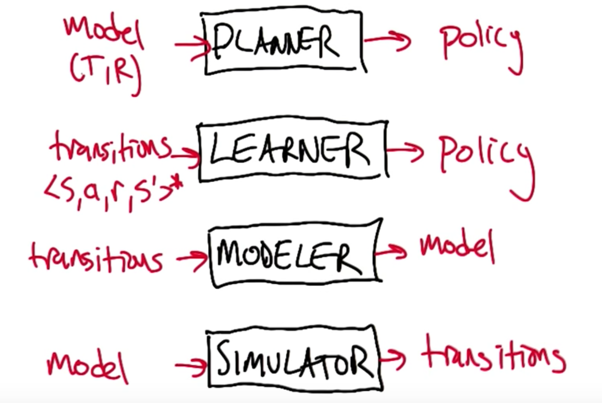 model
(T,R)
PLANNER
policy
transitions
<s,a,r,s'>*
LEARNER
policy
transitions
MODELER
model
model
SIMULATOR
transitions